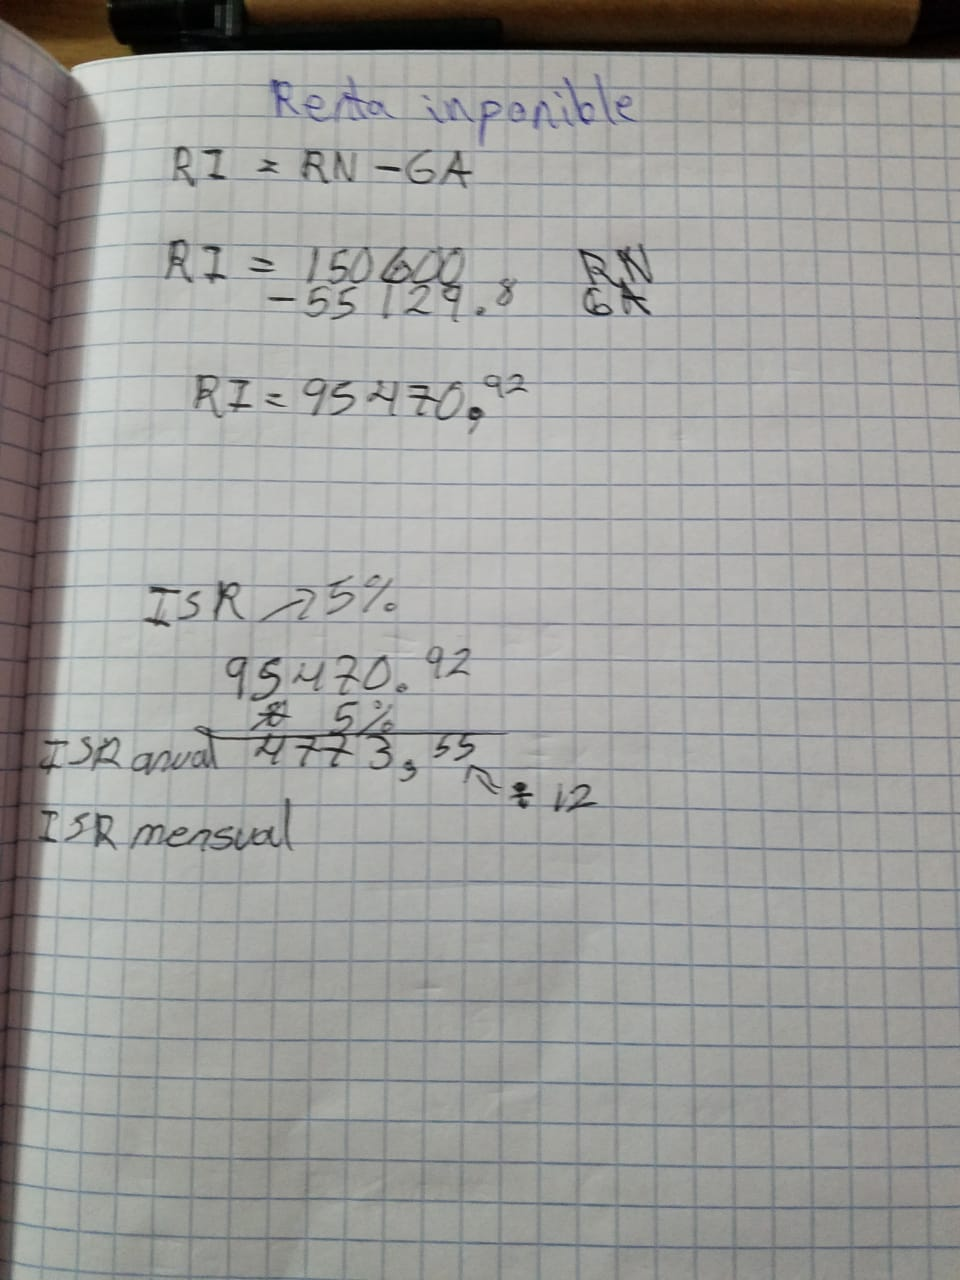 Renta inponible
RI = RN - GA
RI = 150600 RN
- 55129.8 GA
RI = 95470,92
ISR → 5%
95470.92
x 5%
ISR anual 4773,55
÷ 12
ISR mensual